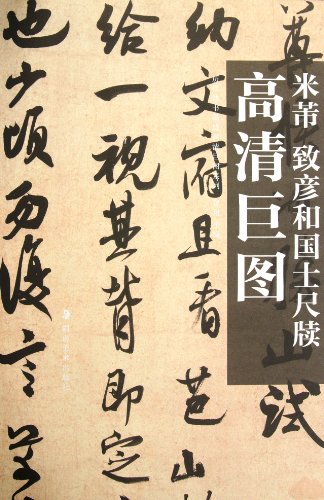 米芾 致彦和国士尺牍
高清巨图
尊
山試
納文府且看芭山
給一視其背即定
也少頃勿復言
湖南美术出版社